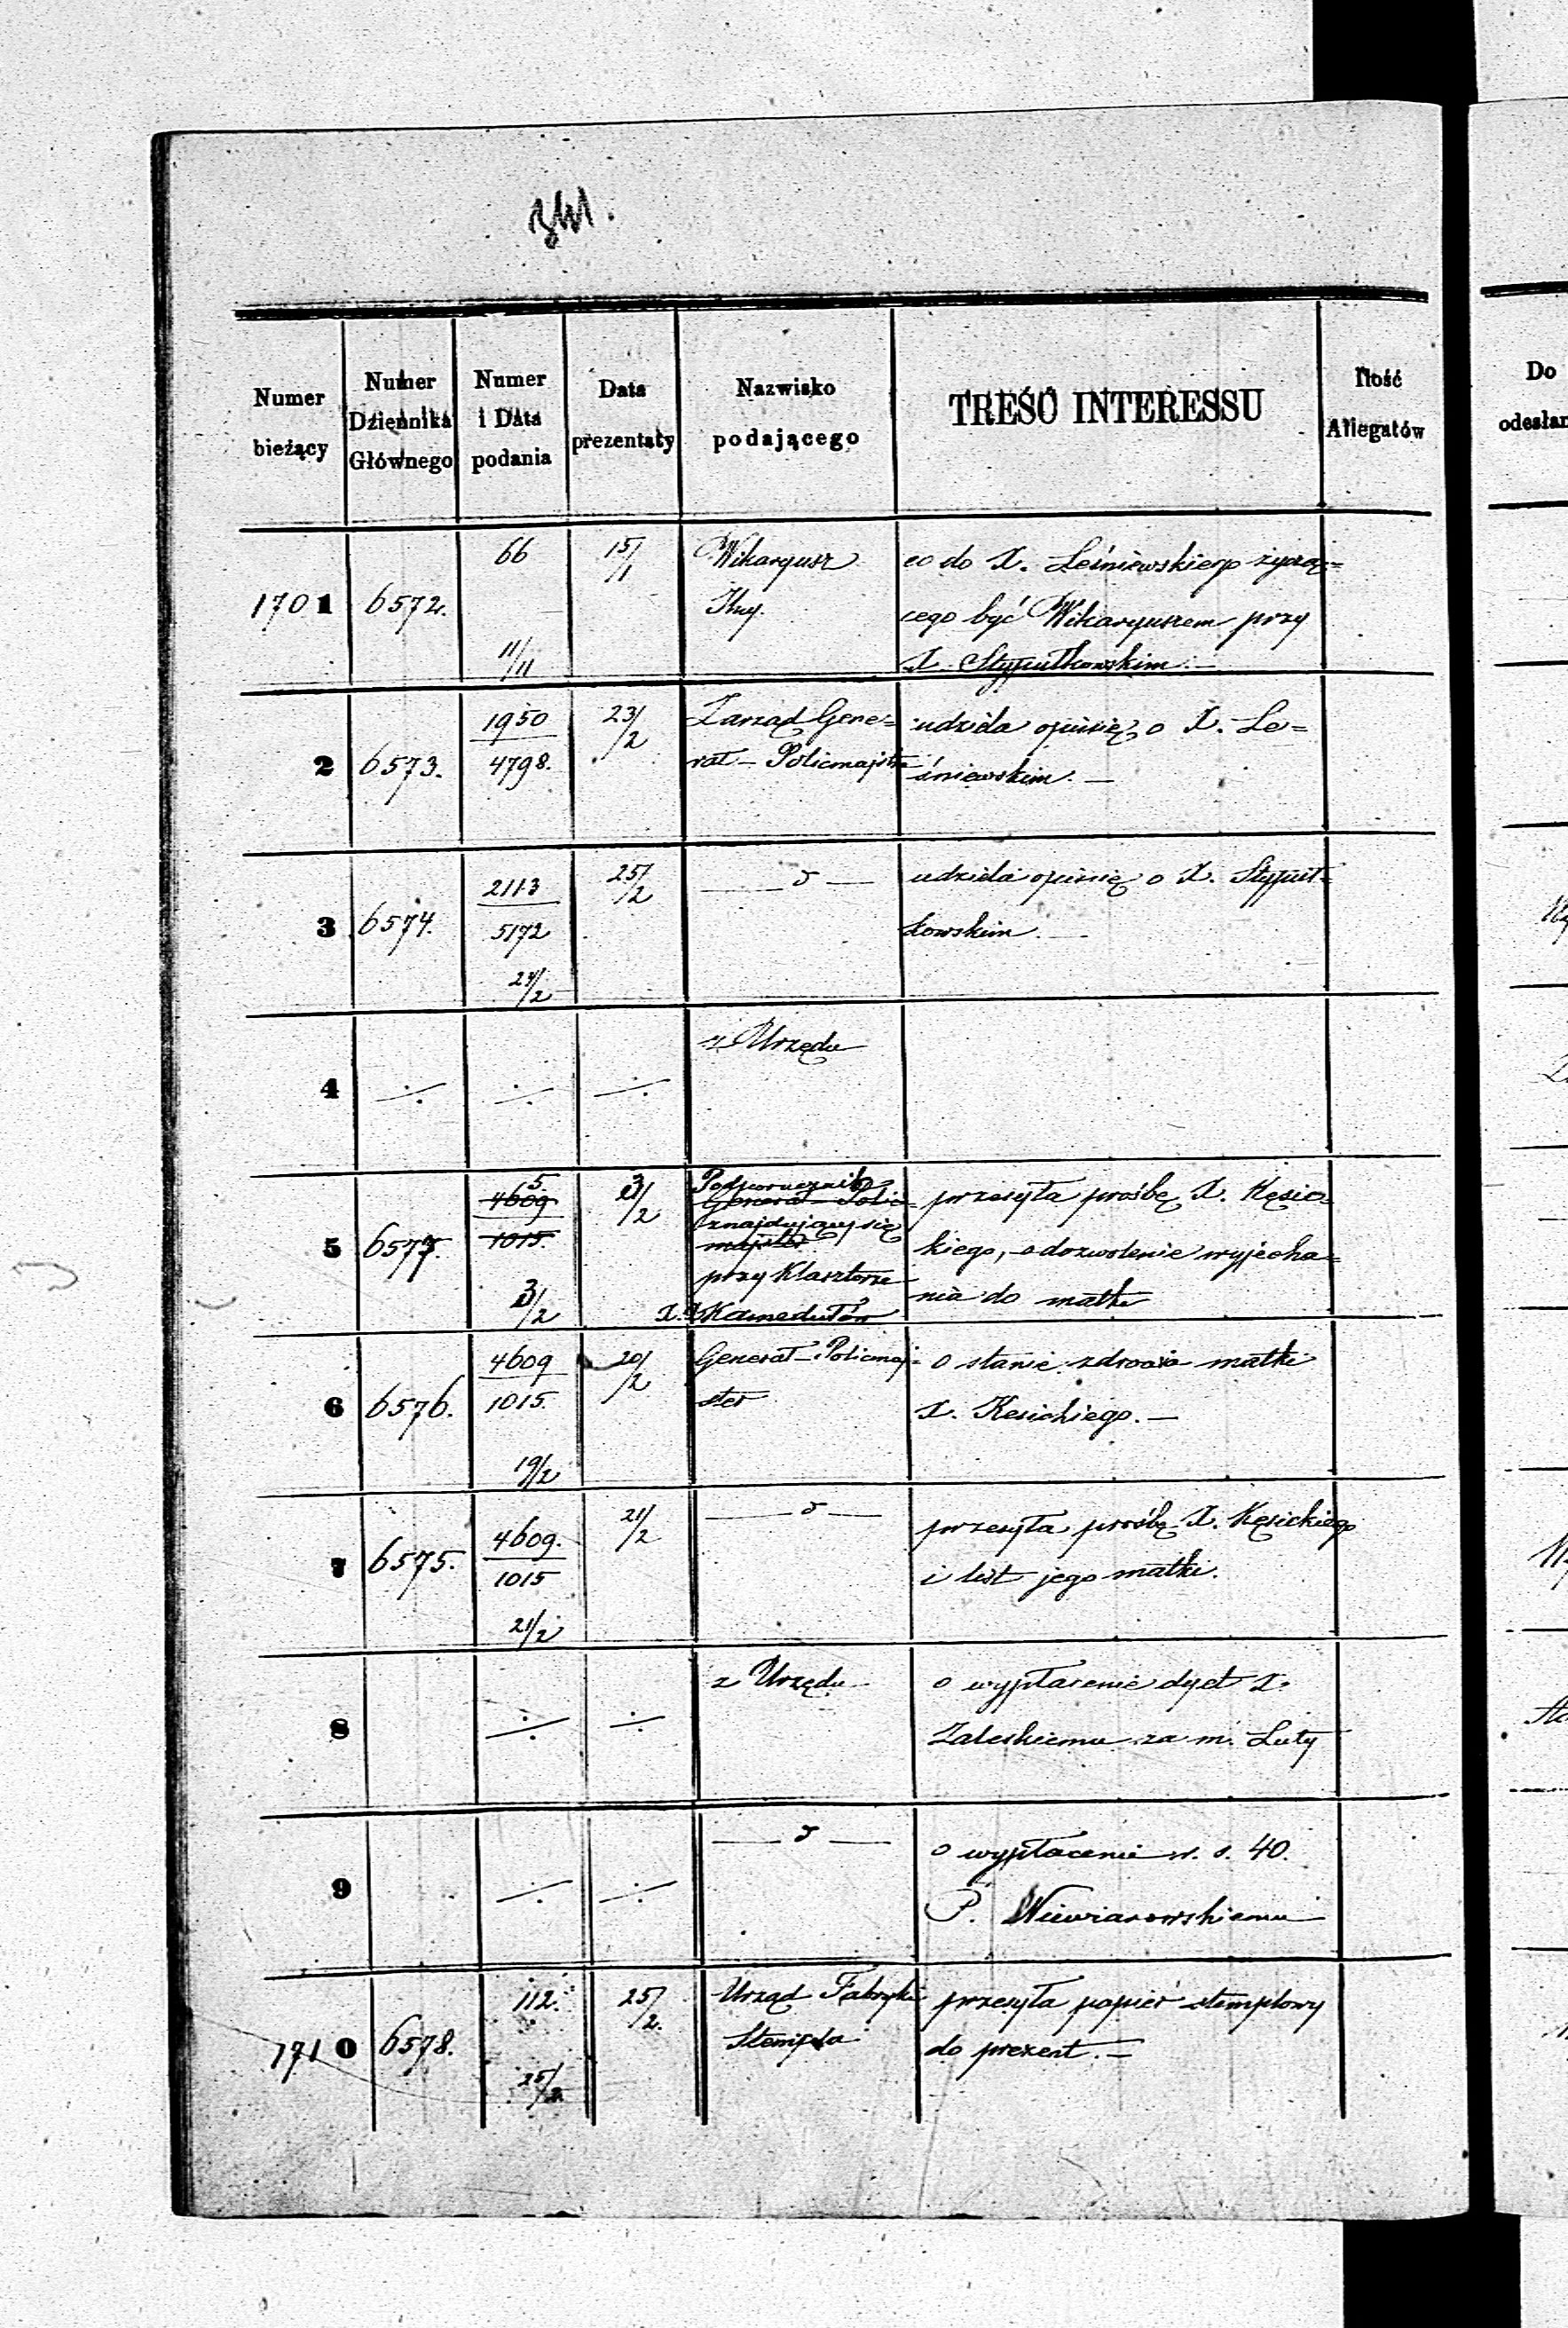 Numer bieżący
Numer Dziennika Głównego
Numer i Data podania
Data prezentaty
Nazwisko podającego
TREŚĆ INTERESSU
Ilość Allegatów
Do
1701 6572. 66 11/11 15/1
Wikaryusz
co do X. Leśniewskiego życzą=
cego być Wikaryuszem przy
X. Stypułkowskim.—
2 6573. 1950 4798. 23/2
Zarząd Gene=
rał – Policmajstra
udziela opinię o X. Le=
śniewskim.—
3 6574. 2113 5172 24/2 25/2
— d —
udziela opinię o X. Stypuł=
kowskim.—
4 ÷ ÷ ÷
z Urzędu
5 6577. 5 4609 1015. 3/2 3/2
Podporucznik
Generał – Polic=
znajdujący się
majster
przy Klasztorze
X. X. Kamedułów
przesyła prośbę X. Kęsic=
kiego, o dozwolenie wyjecha=
nia do matki
6 6576. 4609 1015. 19/2 20/2
Generał – Policmaj=
ster
o stanie zdrowia matki
X. Kesickiego.—
7 6575. 4609. 1015 21/2 21/2
— d —
przesyła prośbę X. Kęsickiego
i list jego matki.
8 ÷ ÷
z Urzędu
o wypłacenie dyet X.
Zaleskiemu za m. Luty
9 ÷ ÷
— d —
o wypłacenie r. s. 40.
P. Wiewiarowskiemu
1710 6578. 112. 25/2 25/2
Urząd Fabryki
Stempla
przesyła papier stemplowy
do prezent.—